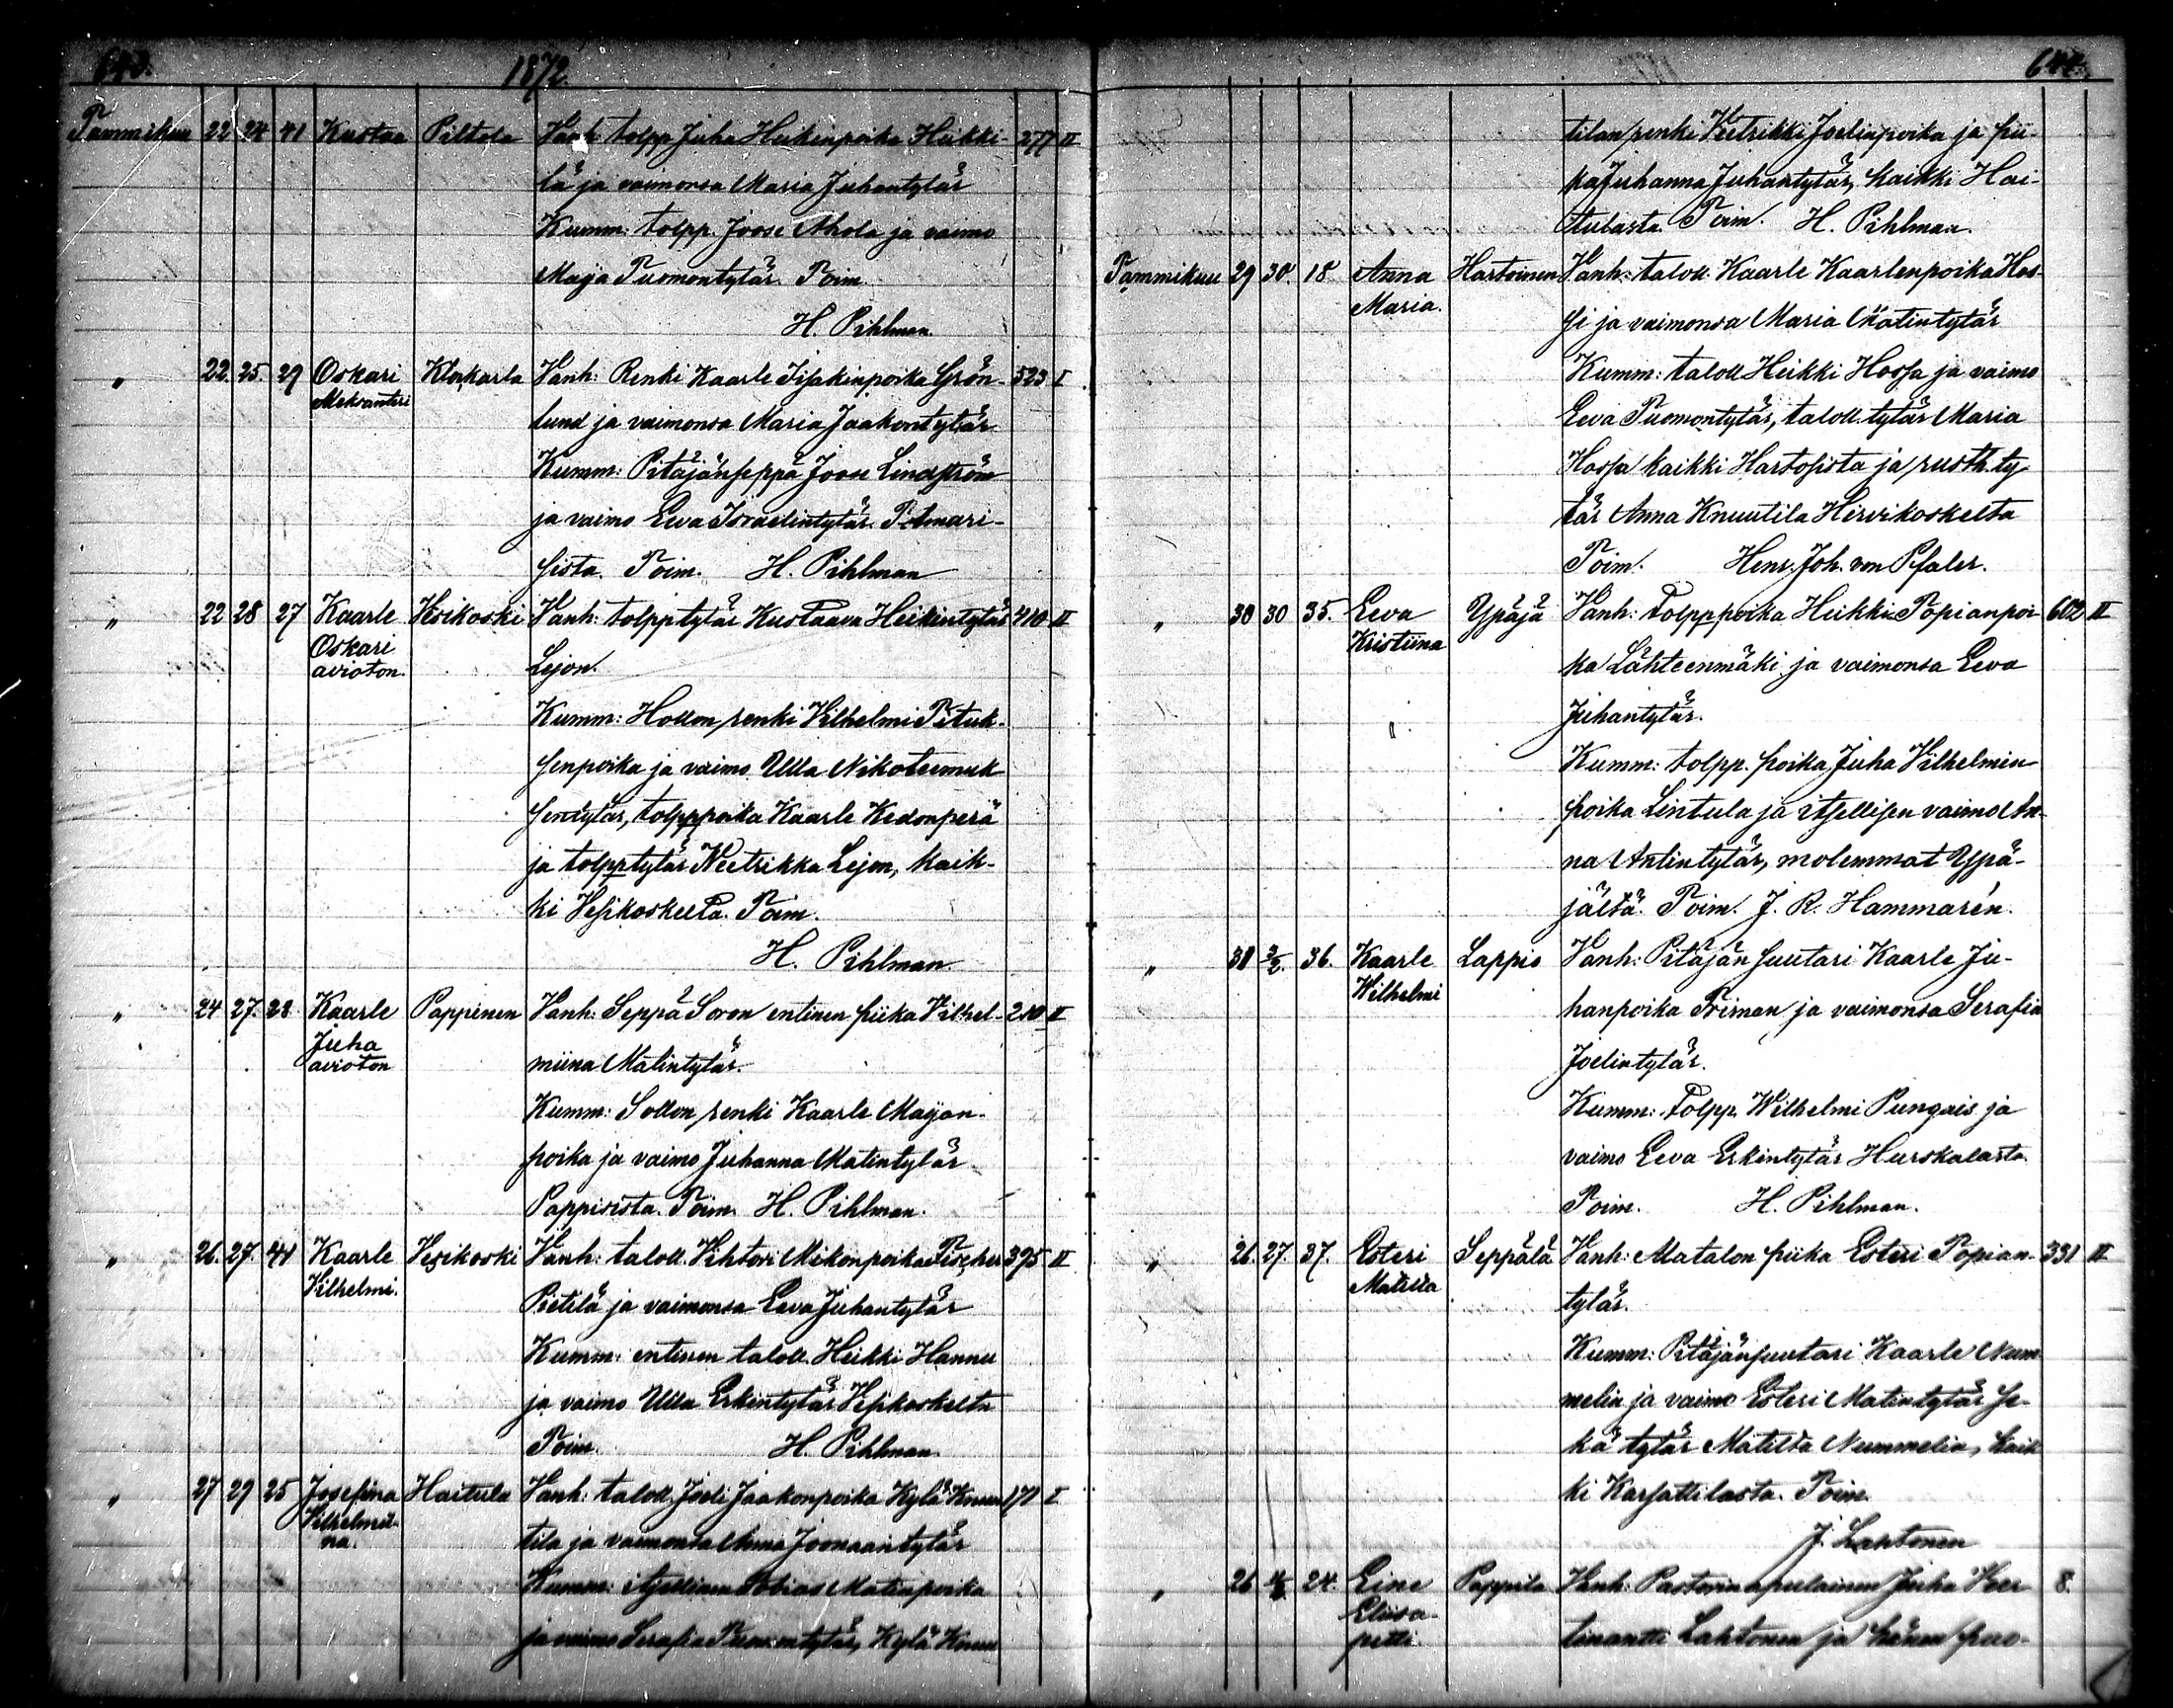 643.
1872.
Tammikuu 22 24 41 Kustaa Piltola Vanh. tolpp Juha Heikenpoika Heikki- 277 II
lä ja vaimonsa Maria Juhantytär
Kumm: tolpp. Joose Ahola ja vaimo
Maija Tuomontytär. Toim.
H. Pihlman
" 22. 25. 29 Oskari Klokarla Vanh: Renki Kaarle Iisakinpoika Grön- 523 I
Aleksanteri
lund ja vaimonsa Maria Jaakontytär
Kumm: Pitäjänseppä Joose Lindström
ja vaimo Eeva Israelintytär
sista. Toim. H. Pihlman
" 22 28 27 Kaarle Vesikoski Vanh: tolpptytär Kustaava Heikintytär 410 II
Oskari Lejon.
avioton.
Kumm: Hollon renki Vilhelmi Pietuk-
senpoika ja vaimo Ulla Nikoteemuk
sentytär, tolpppoika Kaarle Kedonperä
ja tolpptytär Veetrikka Lejon, kaik-
ki Vesikoskelta. Toim.
H. Pihlman
" 24 27. 28 Kaarle Pappinen Vanh: Seppä Soron entinen piika Vilhel- 210 II
Juha
avioton miina Matintytär.
Kumm: Sollon renki Kaarle Maijan-
poika ja vaimo Juhanna Matintytär
Pappisista. Toim. H. Pihlman.
" 26. 27. 41 Kaarle Vesikoski Vanh: taloll. Vihtori Mikonpoika Fischer 395 II
Vilhelmi. Pietilä ja vaimonsa Eeva Juhantytär
Kumm: entinen taloll. Heikki Hannu
ja vaimo Ulla Erkintytär Vesikoskelta
Toim. H. Pihlman
" 27 29 25 Josefina Haitula Vanh: taloll. Joeli Jaakonpoika Kylä Knuu 171 I
Vilhelmii-
na. tila ja vaimonsa Anna Joonaantytär
Kumm: itsellinen Tobias Matinpoika
ja vaimo Serafia Tuomontytär, Kylä Knuu
644.
tilan renki Veetrikki Joelinpoika ja pii-
ka Juhanna Juhantytär, kaikki Hai-
tulasta. Toim. H. Pihlman.
Tammikuu 29 30. 18 Anna Hartoinen Vanh: taloll. Kaarle Kaarlenpoika Hos
Maria. si ja vaimonsa Maria Matintytär
Kumm: taloll Heikki Hossa ja vaimo
Eeva Tuomontytär, taloll. tytär Maria
Hossa kaikki Hartosista ja rusth. ty
tär Anna Knuutila Hirvikoskelta
Toim. Henr. Joh. von Pfaler.
" 30 30 35. Eeva Ypäjä Vanh: Tolpppoika Heikki Topianpoi 602 II
Kristiina ka Lähteenmäki ja vaimonsa Eeva
Juhantytär.
Kumm: tolpp. poika Juha Vilhelmin
poika Lintula ja itsellisen vaimo An-
na Antintytär, molemmat Ypä-
jältä. Toim. J. R. Hammarén.
" 31 3/2. 36. Kaarle Lappio Vanh: Pitäjän suutari Kaarle Ju-
Wilhelmi hanpoika Friman ja vaimonsa Serafia
Joelintytär.
Kumm: Tolpp. Wilhelmi Pungais ja
vaimo Eeva Erkintytär Hurskalasta.
Toim. H. Pihlman.
" 26. 27. 37. Esteri Seppälä Vanh: Matalon piika Esteri Topian- 331 II
Matilta tytär.
Kumm: Pitäjänsuutari Kaarle Num
melin ja vaimo Esteri Matintytär se-
kä tytär Matilta Nummelin, kaik
ki Karsattilasta. Toim.
J. Lahtonen
" 26 24. Eine Pappila Vanh: Pastorin apulainen Juha Veer 8.
Eliisa-
petti tinantti Lahtonen ja hänen puo-